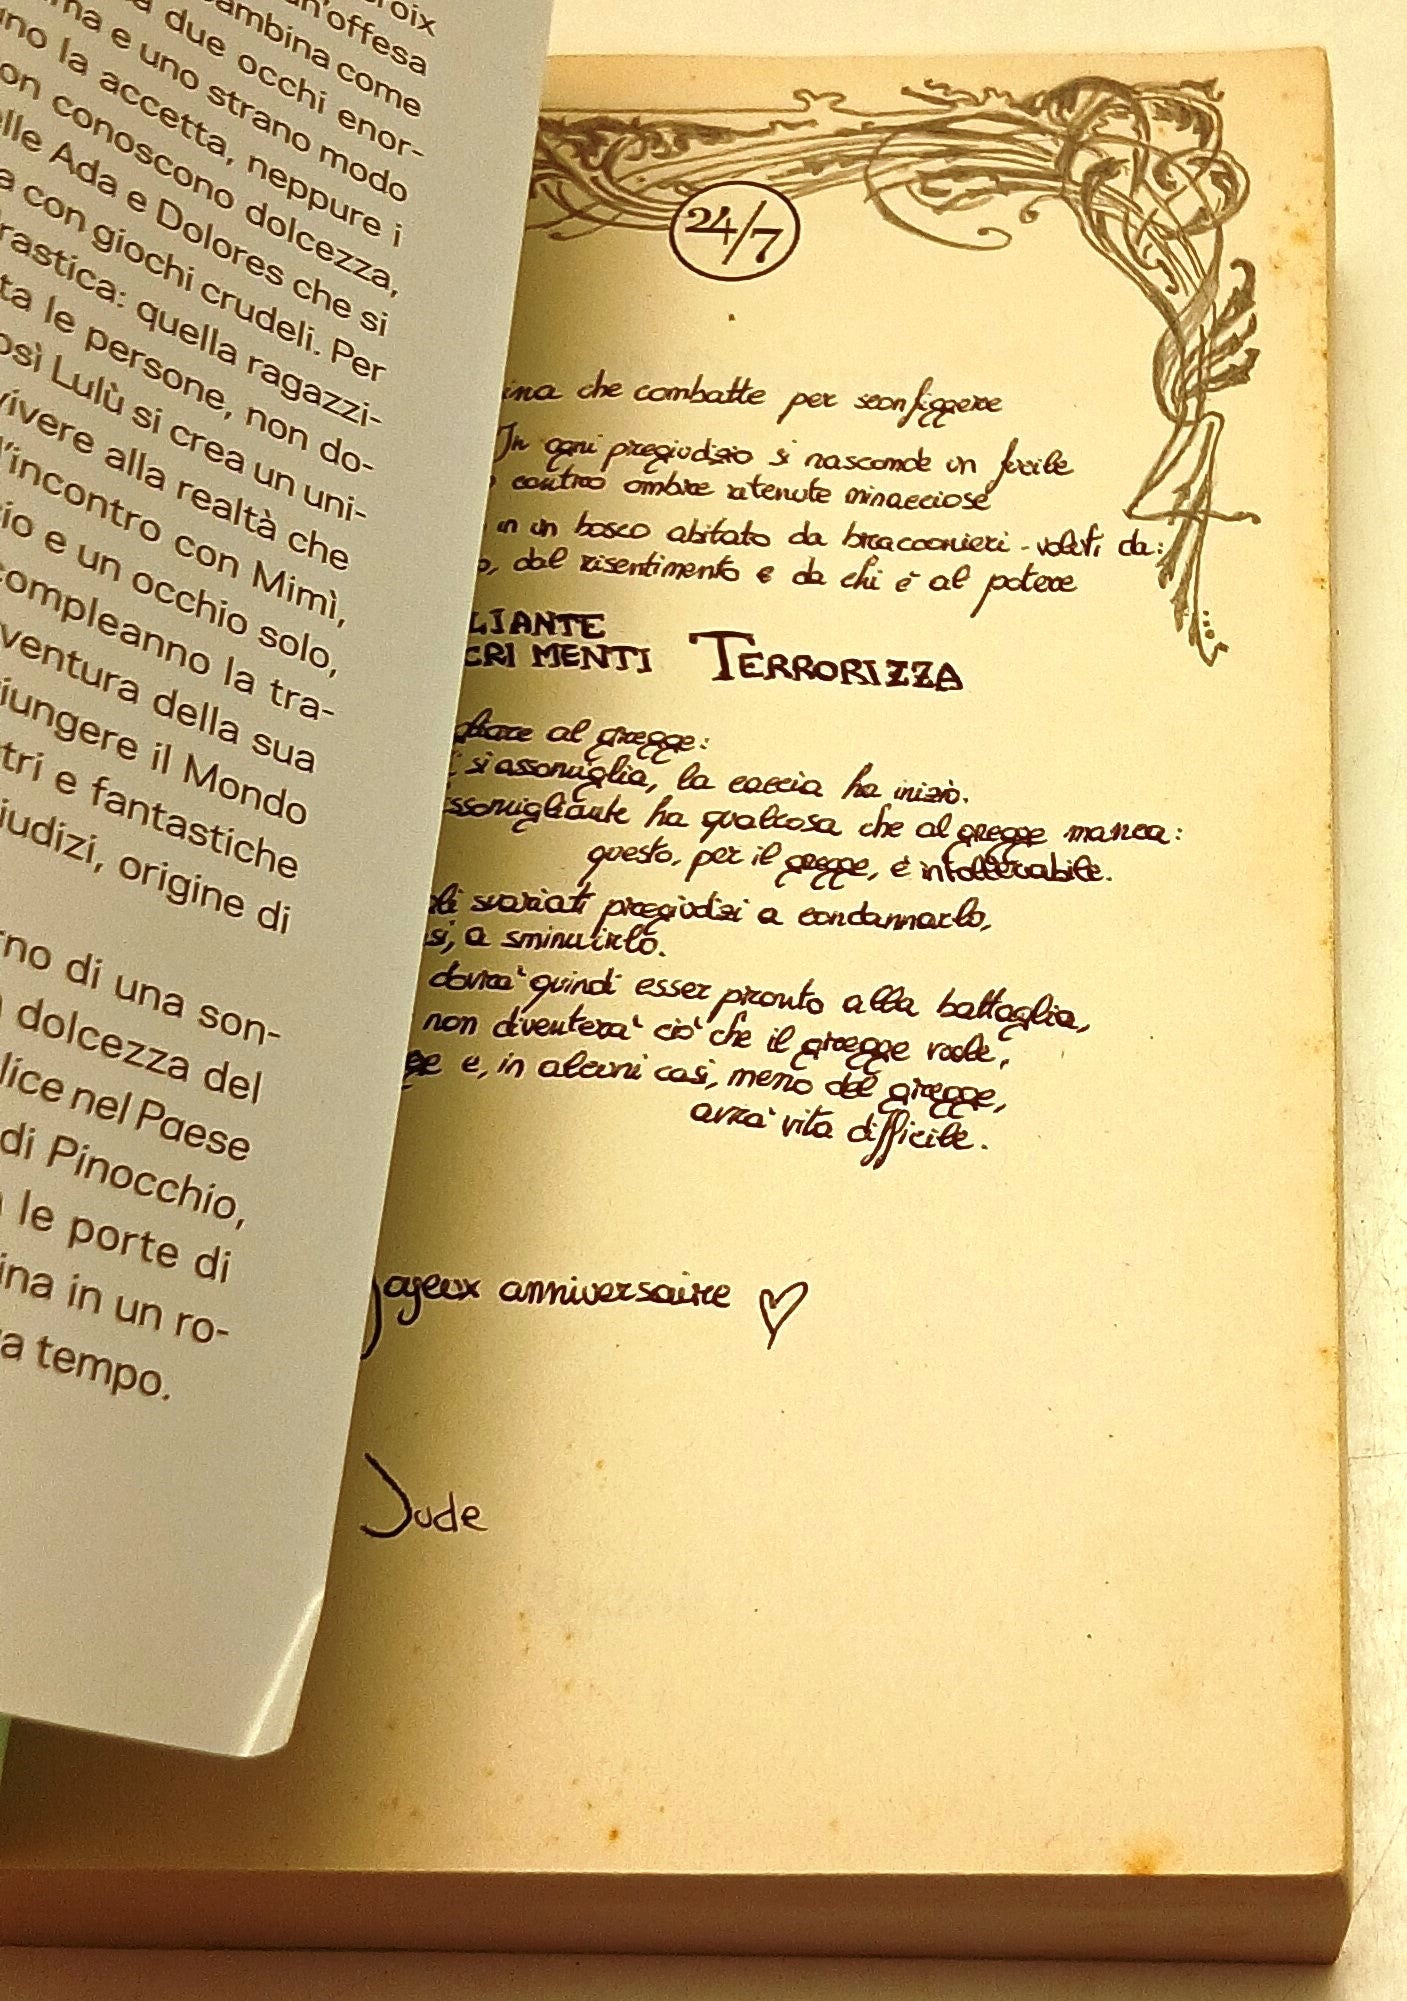 roix
un'offesa
ambina come
due occhi enor-
ma e uno strano modo
uno la accetta, neppure i
on conoscono dolcezza,
elle Ada e Dolores che si
a con giochi crudeli. Per
rastica: quella ragazzi-
ta le persone, non do-
osì Lulù si crea un uni-
vivere alla realtà che
l'incontro con Mimì,
io e un occhio solo,
compleanno la tra-
ventura della sua
iungere il Mondo
tri e fantastiche
iudizi, origine di
rno di una son-
dolcezza del
lice nel Paese
di Pinocchio,
le porte di
ina in un ro-
a tempo.
24/7
ina che combatte per sconfiggere
In ogni pregiudizio si nasconde un fucile
contro ombre ritenute minacciose
in un bosco abitato da bracconieri - voluti da:
o, dal risentimento e da chi è al potere
LIANTE
CRI MENTI TERRORIZZA
gliare al gregge:
si assomiglia, la caccia ha inizio.
ssomigliante ha qualcosa che al gregge manca:
questo, per il gregge, è intollerabile.
gli svariati pregiudizi a condannarlo,
si, a sminuirlo.
dovrà quindi esser pronto alla battaglia,
non diventerà ciò che il gregge vuole,
ge e, in alcuni casi, meno del gregge,
avrà vita difficile.
Joyeux anniversaire
Jude